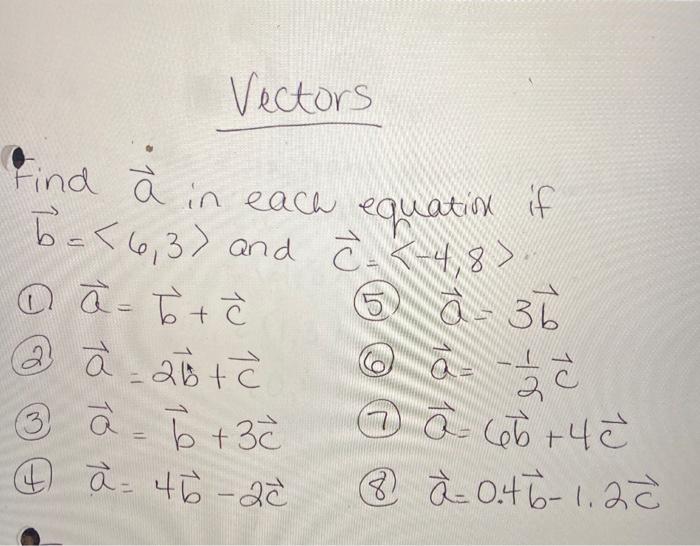 Vectors
Find a⃗ in each equation if
b⃗ = <6,3> and c⃗ = <-4,8>.
① a⃗ = b⃗ + c⃗
② a⃗ = 2b⃗ + c⃗
③ a⃗ = b⃗ + 3c⃗
④ a⃗ = 4b⃗ - 2c⃗
⑤ a⃗ = 3b⃗
⑥ a⃗ = -1/2 c⃗
⑦ a⃗ = 6b⃗ + 4c⃗
⑧ a⃗ = 0.4b⃗ - 1.2c⃗